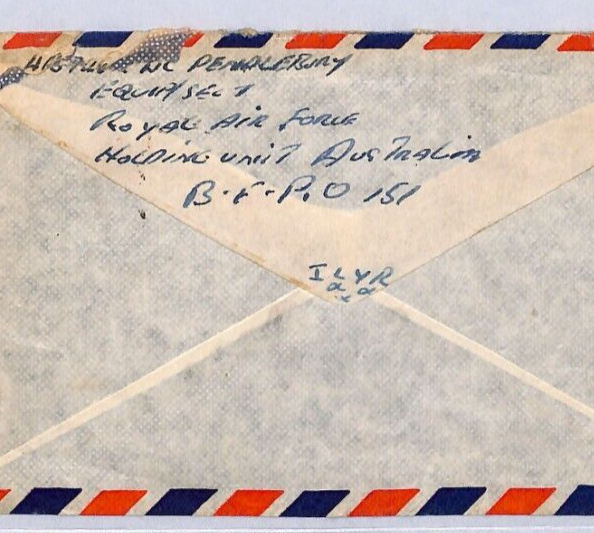 EQUIP SECT
ROYAL AIR FORCE
HOLDING UNIT AUSTRALIA
B.F.P.O 151
I L Y A